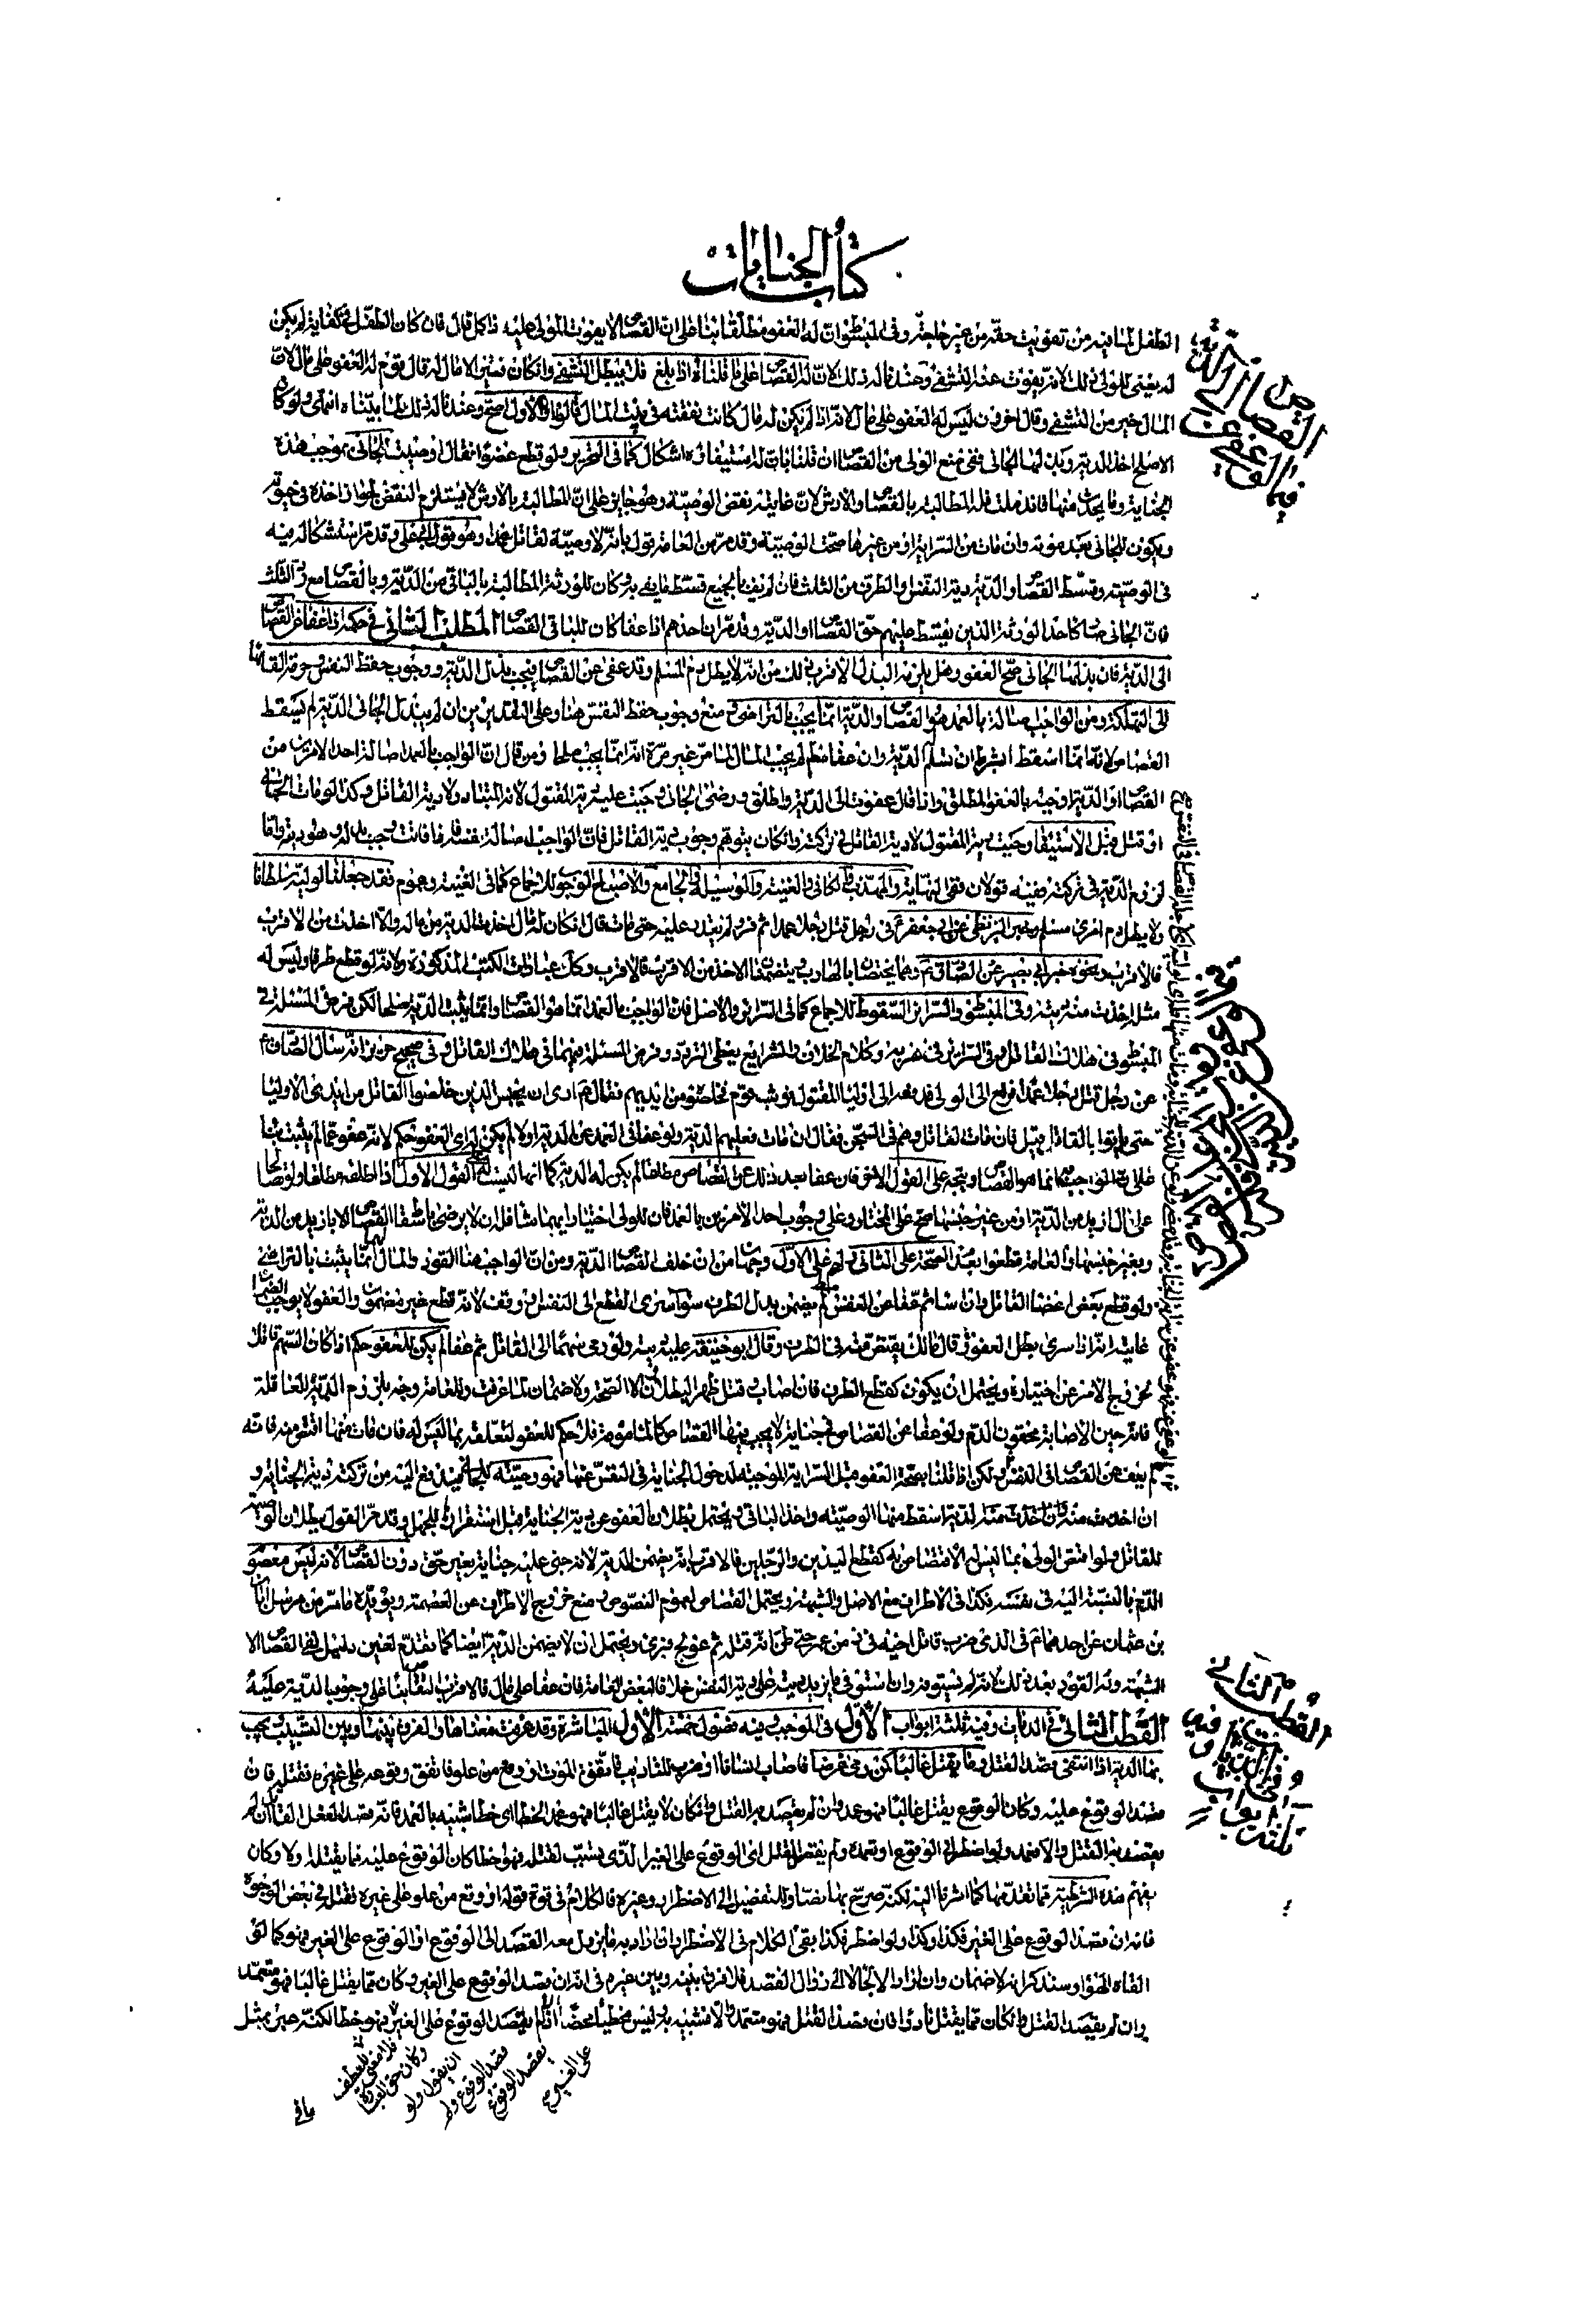 كتاب الجنايات
الطفل لما فيه من تفويت حقه من غير حاجة وفي المبسوط ان له العفو مطلقا بناء على ان القصاص لا يفوت المولى عليه فاكمل قال فان كان الطفل في كفاية لم يكن
له يعني للولى ذلك لانه يفوت عنه التشفي وعندنا له ذلك لان له القصاص على ما قلناه اذا بلغ فلا يبطل التشفي وان كان فقيرا لا مال له قال قوم له العفو على مال لان
المال خير من التشفي وقال اخرون ليس له العفو على مال لانه اذا لم يكن له مال كانت نفقته في بيت المال قالوا والاول اصح وعندنا له ذلك لما بيناه انتهى ولو كان
الاصلح اخذ الدية وبذلها الجاني ففي منع الولى من القصاص ان قلنا بان له استيفاؤه اشكال كما في التحرير ولو قطع عضوا فقال اوصيت للجاني بموجب هذه
الجناية وما يحدث منها فاندملت فله المطالبة بالقصاص او الارش لان غايته نقض الوصية وهو جايز على ان المطالبة بالارش لا يستلزم النقض لجواز اخذه في حيوته
ويكون للجاني بعد موته وان مات من السراية او من غيرها صحت الوصية وقد مر من العامة قول بانه لا وصية لقاتل عمدا وهو قول ابي علي وقد مر استشكاله فيه
في الوصية ومسقط القصاص والدية دية النفس والطرف من الثلث فان لم يف بالجميع قسط ما يفي به وكان للورثة المطالبة بالباقي من الدية وبالقصاص مع رد الثلث
فان الجاني صار كاحد الورثة الذين يقسط عليهم حق القصاص او الدية وقد مر ان احدهم اذا عفا كان للباقي القصاص المطلب الثاني في حكمه اذا عفا عن القصاص
الى الدية فان بذلها الجاني صح العفو وهل يلزمه البذل الاقرب ذلك من انه لا يطل دم المسلم وقد عفى عن القصاص فيجب بذل الدية ووجوب حفظ النفس وحرمة القائها
الى التهلكة ومن ان الواجب اصالة بالعمد هو القصاص والدية انما يجب بالتراضي مع منع وجوب حفظ النفس هنا وعلى التقديرين ان لم يبذل الجاني الدية لم يسقط
القصاص لانه انما اسقط بشرط ان تسلم الدية وان عفا مطلقا لم يجب المال لما مر غير مرة انه انما يجب صلحا ومن قال ان الواجب بالعمد اصالة احد الامرين من
القصاص او الدية اوجبه بالعفو المطلق واذا قال عفوت الى الدية واطلق ورضي الجاني وجبت عليه دية المقتول لانه المتبادر لا دية القاتل وكذا لو مات الجاني
او قتل قبل الاستيفاء وجبت دية المقتول لا دية القاتل في تركته وان كان يتوهم وجوب دية القاتل فان الواجب اصالة نفسه فاذا فاتت وجب بدله وهو ديته واما
لزوم الدية في تركته ففيه قولان ففي النهاية والمهذب والكافي والغنية والوسيلة والجامع والاصباح الوجوب للاجماع كما في الغنية وعموم فقد جعلنا لوليه سلطانا
ولا يطل دم امرئ مسلم وخبر البزنطي عن ابي جعفر ع في رجل قتل رجلا عمدا ثم فر فلم يقدر عليه حتى مات قال ان كان له مال اخذت الدية من ماله والا اخذت من الاقرب
فالاقرب ونحوه خبر ابي بصير عن الصادق ع وهما يختصان بالهارب ويتضمنان الاخذ من الاقرب فالاقرب وكذا عبارات الكتب المذكورة ولانه لو قطع طرفا وليس له
مثل اخذت منه ديته وفي المبسوط والسراير السقوط للاجماع كما في السراير والاصل فان الواجب بالعمد انما هو القصاص وانما يثبت الدية صلحا لكن فرض المسئلة في
المبسوط في هلاك القاتل وفي السراير في هربه وكلام الخلاف والشرايع يعطي التردد وفرض المسئلة فيهما في هلاك القاتل وفي صحيح حريز انه سأل الصادق ع
عن رجل قتل رجلا عمدا فرفع الى الوالي فدفعه الى اولياء المقتول فوثب قوم فخلصوه من ايديهم فقال ع ارى ان يحبس الذين خلصوا القاتل من ايدي الاولياء
حتى ياتوا بالقاتل قيل فان مات القاتل وهم في السجن فقال ان مات فعليهم الدية ولو عفا في العمد عن الدية اولا لم يكن له اي العفو حكم لانه عفو عما لم يثبت بناء
على ان الواجب انما هو القصاص ويتجه على القول الاخر فان عفا بعد ذلك عن القصاص مطلقا لم يكن له الدية كما انها ليست له على القول الاول اذا اطلقه مطلقا ولو صالحا
على مال ازيد من الدية او من غير جنسها صح على المختار وعلى وجوب احد الامرين بالعمد فان للولى اختيار ايهما شاء فله ان لا يرضى باسقاط القصاص الا بازيد من الدية
وبغير جنسها والعامة قطعوا بعدم الصحة على الثاني ولهم على الاول وجهان من ان خلف القصاص الدية ومن ان الواجب هنا القود والمال انما يثبت بالتراضي
ولو قطع بعض اعضاء القاتل ثم عفا عن النفس لم يضمن بدل الطرف سواء سرى القطع الى النفس او وقف لانه قطع غير مضمون والعفو لا يوجب الضمان
غايته انه اذا سرى بطل العفو وقال مالك يقتص منه في الطرف وقال ابو حنيفة عليه ديته ولو رمى سهما الى القاتل ثم عفا لم يكن للعفو حكم اذا كان السهم قاتلا
لخروج الامر عن اختياره ويحتمل ان يكون كقطع الطرف فان اصاب وقتل ظهر البطلان والا الصحة ولا ضمان لما عرفت وللعامة وجه بلزوم الدية للعاقلة
فانه حين الاصابة محقون الدم ولو عفا عن القصاص في جناية لا يجب فيها القصاص كالمأمومة فلا حكم للعفو لتعلقه بما ليس له فان مات منها اقتص منه فانه
لم يعف عن القصاص في النفس ولكن اذا قلنا بصحة العفو قبل السراية الموجبة لدخول الجناية في النفس عنها فهو وصيته للجاني فيدفع اليه من تركته دية الجناية و
للقاتل ولو اقتص الولى بما ليس له الاقتصاص به كقطع اليدين والرجلين فالاقرب انه يضمن الدية لانه جنى عليه جناية بغير حق دون القصاص لانه ليس معصوم
الدم بالنسبة اليه في نفسه فكذا في الاطراف مع الاصل والشبهة ويحتمل القصاص لعموم النصوص ومنع خروج الاطراف عن العصمة ويؤيده ما مر من مرسل ابان
بن عثمان عن احدهما ع في الذي ضرب قاتل اخيه في زمن عمر حتى ظن انه قتله ثم عولج فبرئ ويحتمل ان لا يضمن الدية ايضا كما تقدم
القطب الثاني في الديات وفيه ثلثة ابواب الاول في الموجب وفيه فصول خمسة الاول المباشرة وقد عرفت معناها والفرق بينها وبين التسبيب يجب
بها الدية اذا انتفى قصد القتل وما يقتل غالبا كمن رمى غرضا فاصاب انسانا او ضرب للتاديب فاتفق الموت او وقع من علو فاتفق وقوعه على غيره فقتله فان
قصد الوقوع عليه وكان الوقوع يقتل غالبا فهو عمد وان لم يقصد به القتل وان كان لا يقتل غالبا فهو عمد الخطا اي خطا شبيه بالعمد فانه قصد الفعل اتفاقا ان لم
يقصد به القتل والا فعمد ولو اضطر الى الوقوع او تعمده ولم يقصد القتل اي الوقوع على الغير الذي تسبب لقتله فهو خطا كان الوقوع عليه مما يقتله ولا وكان
يفهم هذه الشرطية مما تقدمها كما اشرنا اليه لكنه صرح بها نصا وللتفصيل الى الاضطرار وغيره فالكلام في قوة قوله او وقع من علو على غيره فقتله في بعض الوجوه
فانه ان قصد الوقوع على الغير فكذا وكذا ولو اضطر فكذا بقي الكلام في الاضطرار فان اراد به ما يزول معه القصد الى الوقوع او الوقوع على الغير فهو كما لو
القاه الهواء وسنذكر انه لا ضمان وان اراد الالجاء لا الى زوال القصد فلا فرق بينه وبين غيره في انه ان قصد الوقوع على الغير وكان مما يقتل غالبا فهو متعمد
وان لم يقصد القتل وان كان مما يقتل نادرا فان قصد القتل فهو متعمد والا فشبيه به وليس مخطئا محضا اذا لم يقصد الوقوع على الغير فهو خطا لكنه عين مثل
القطب الثاني
في الديات وفيه
ثلثة ابواب